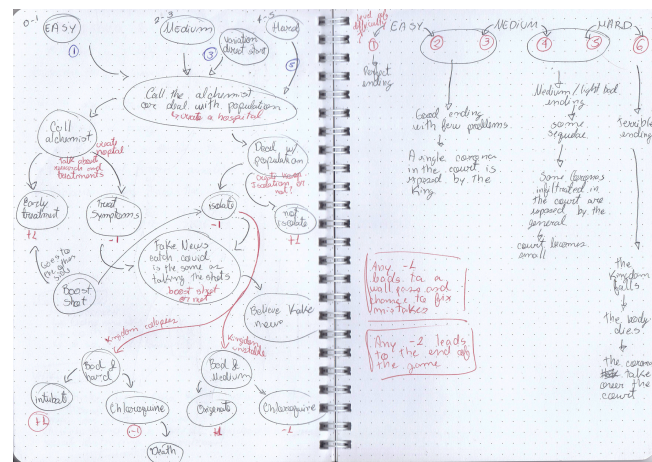 0-1
EASY
1
2-3
Medium
3
Variation
direct shot
4-5
Hard
5
Call the alchemist
or deal with population
create a hospital
Call
alchemist
create
hospital
talk about
research and
treatments
Deal w/
population
Early
treatment
+1
Treat
Symptoms
-1
isolate
-1
not isolate
+1
Goes to
the other
side
Boost
shot
Fake News
catch covid
is the same as
taking the shots
boost shot
or not
Believe Fake
news
Kingdom collapses
Kingdom
unstable
Bad &
hard
Bad &
Medium
Intubate
+1
Chloroquine
-1
Death
Oxigenate
+1
Chloroquine
-1
level of
difficulty
EASY
MEDIUM
HARD
1
2
3
4
5
6
Perfect
ending
Good ending
with few problems
A single corona
in the court is
exposed by the
King
Medium/light bad
ending
some
sequelae
Some coronas
infiltrated in
the court are
exposed by the
general
court becomes
small
Terrible
ending
the
Kingdom
falls
the body
dies
the corona
take
over the
court
Any -1
leads to a
wall pass and
chance to fix
mistakes
Any -2 leads
to the end of
the game